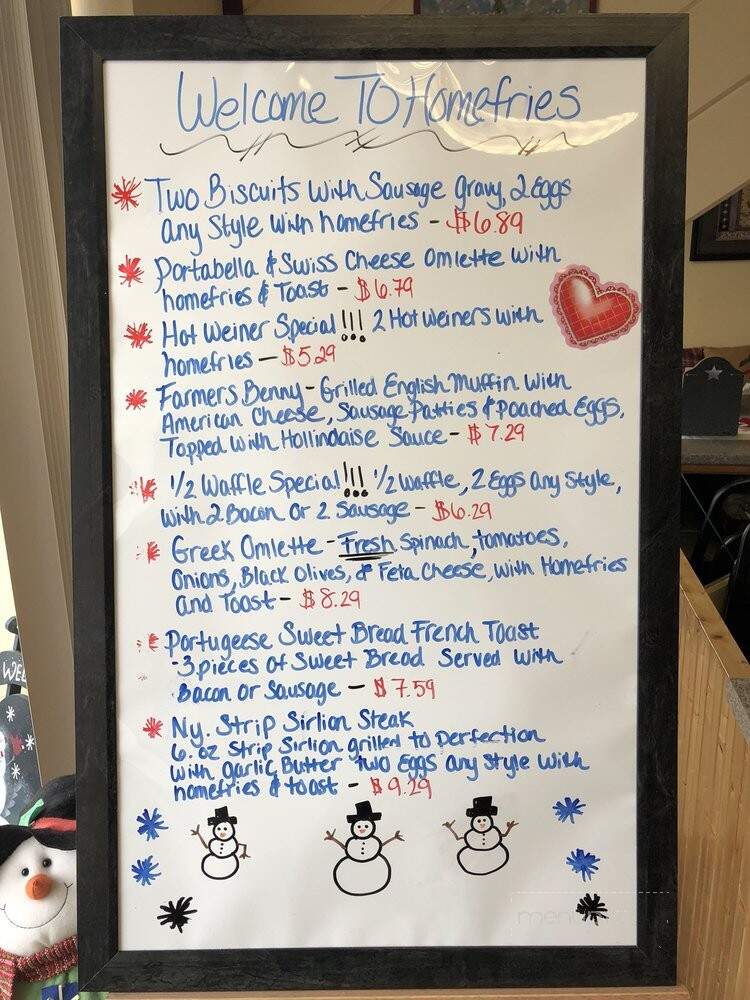 Welcome To Homefries
Two Biscuits with Sausage gravy, 2 Eggs
any Style with homefries - $6.89
Portabella & Swiss Cheese Omlette with
homefries & Toast - $6.79
Hot Weiner Special!!! 2 Hot weiners with
homefries - $5.29
Farmers Benny - Grilled English Muffin with
American Cheese, Sausage Patties & Poached Eggs,
Topped with Hollindaise Sauce - $7.29
1/2 Waffle Special!!! 1/2 waffle, 2 Eggs any Style,
with 2 Bacon or 2 Sausage - $6.29
Greek Omlette - Fresh Spinach, tomatoes,
Onions, Black Olives, & Feta Cheese, with Homefries
and Toast - $8.29
Portugeese Sweet Bread French Toast
-3 pieces of Sweet Bread Served with
Bacon or Sausage - $7.59
Ny. Strip Sirlion Steak
6. oz Strip Sirlion grilled to perfection
with garlic Butter two Eggs any style with
homefries & toast - $9.29